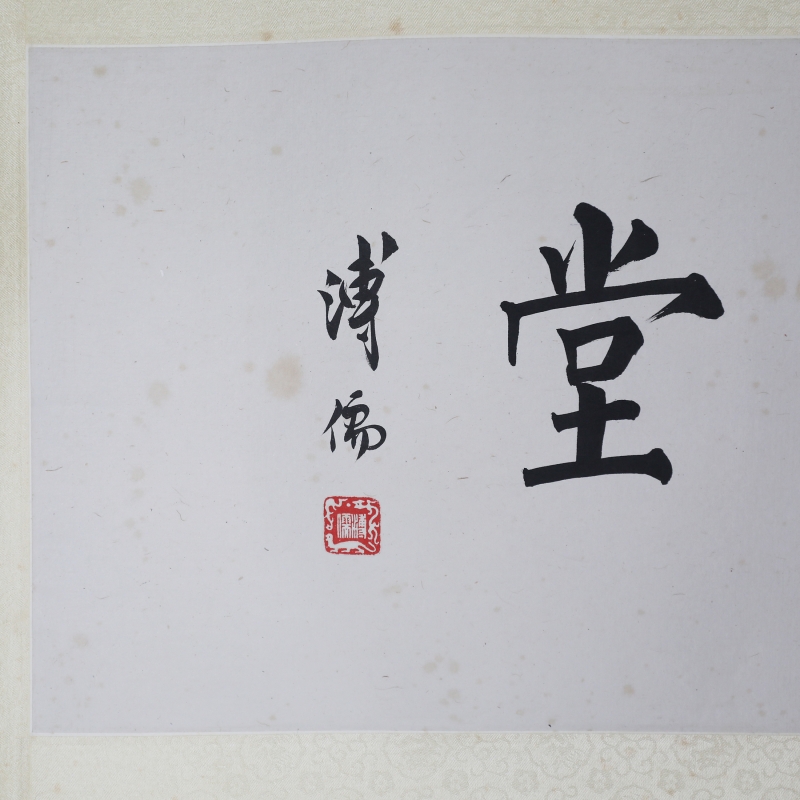 堂
溥儒
溥儒